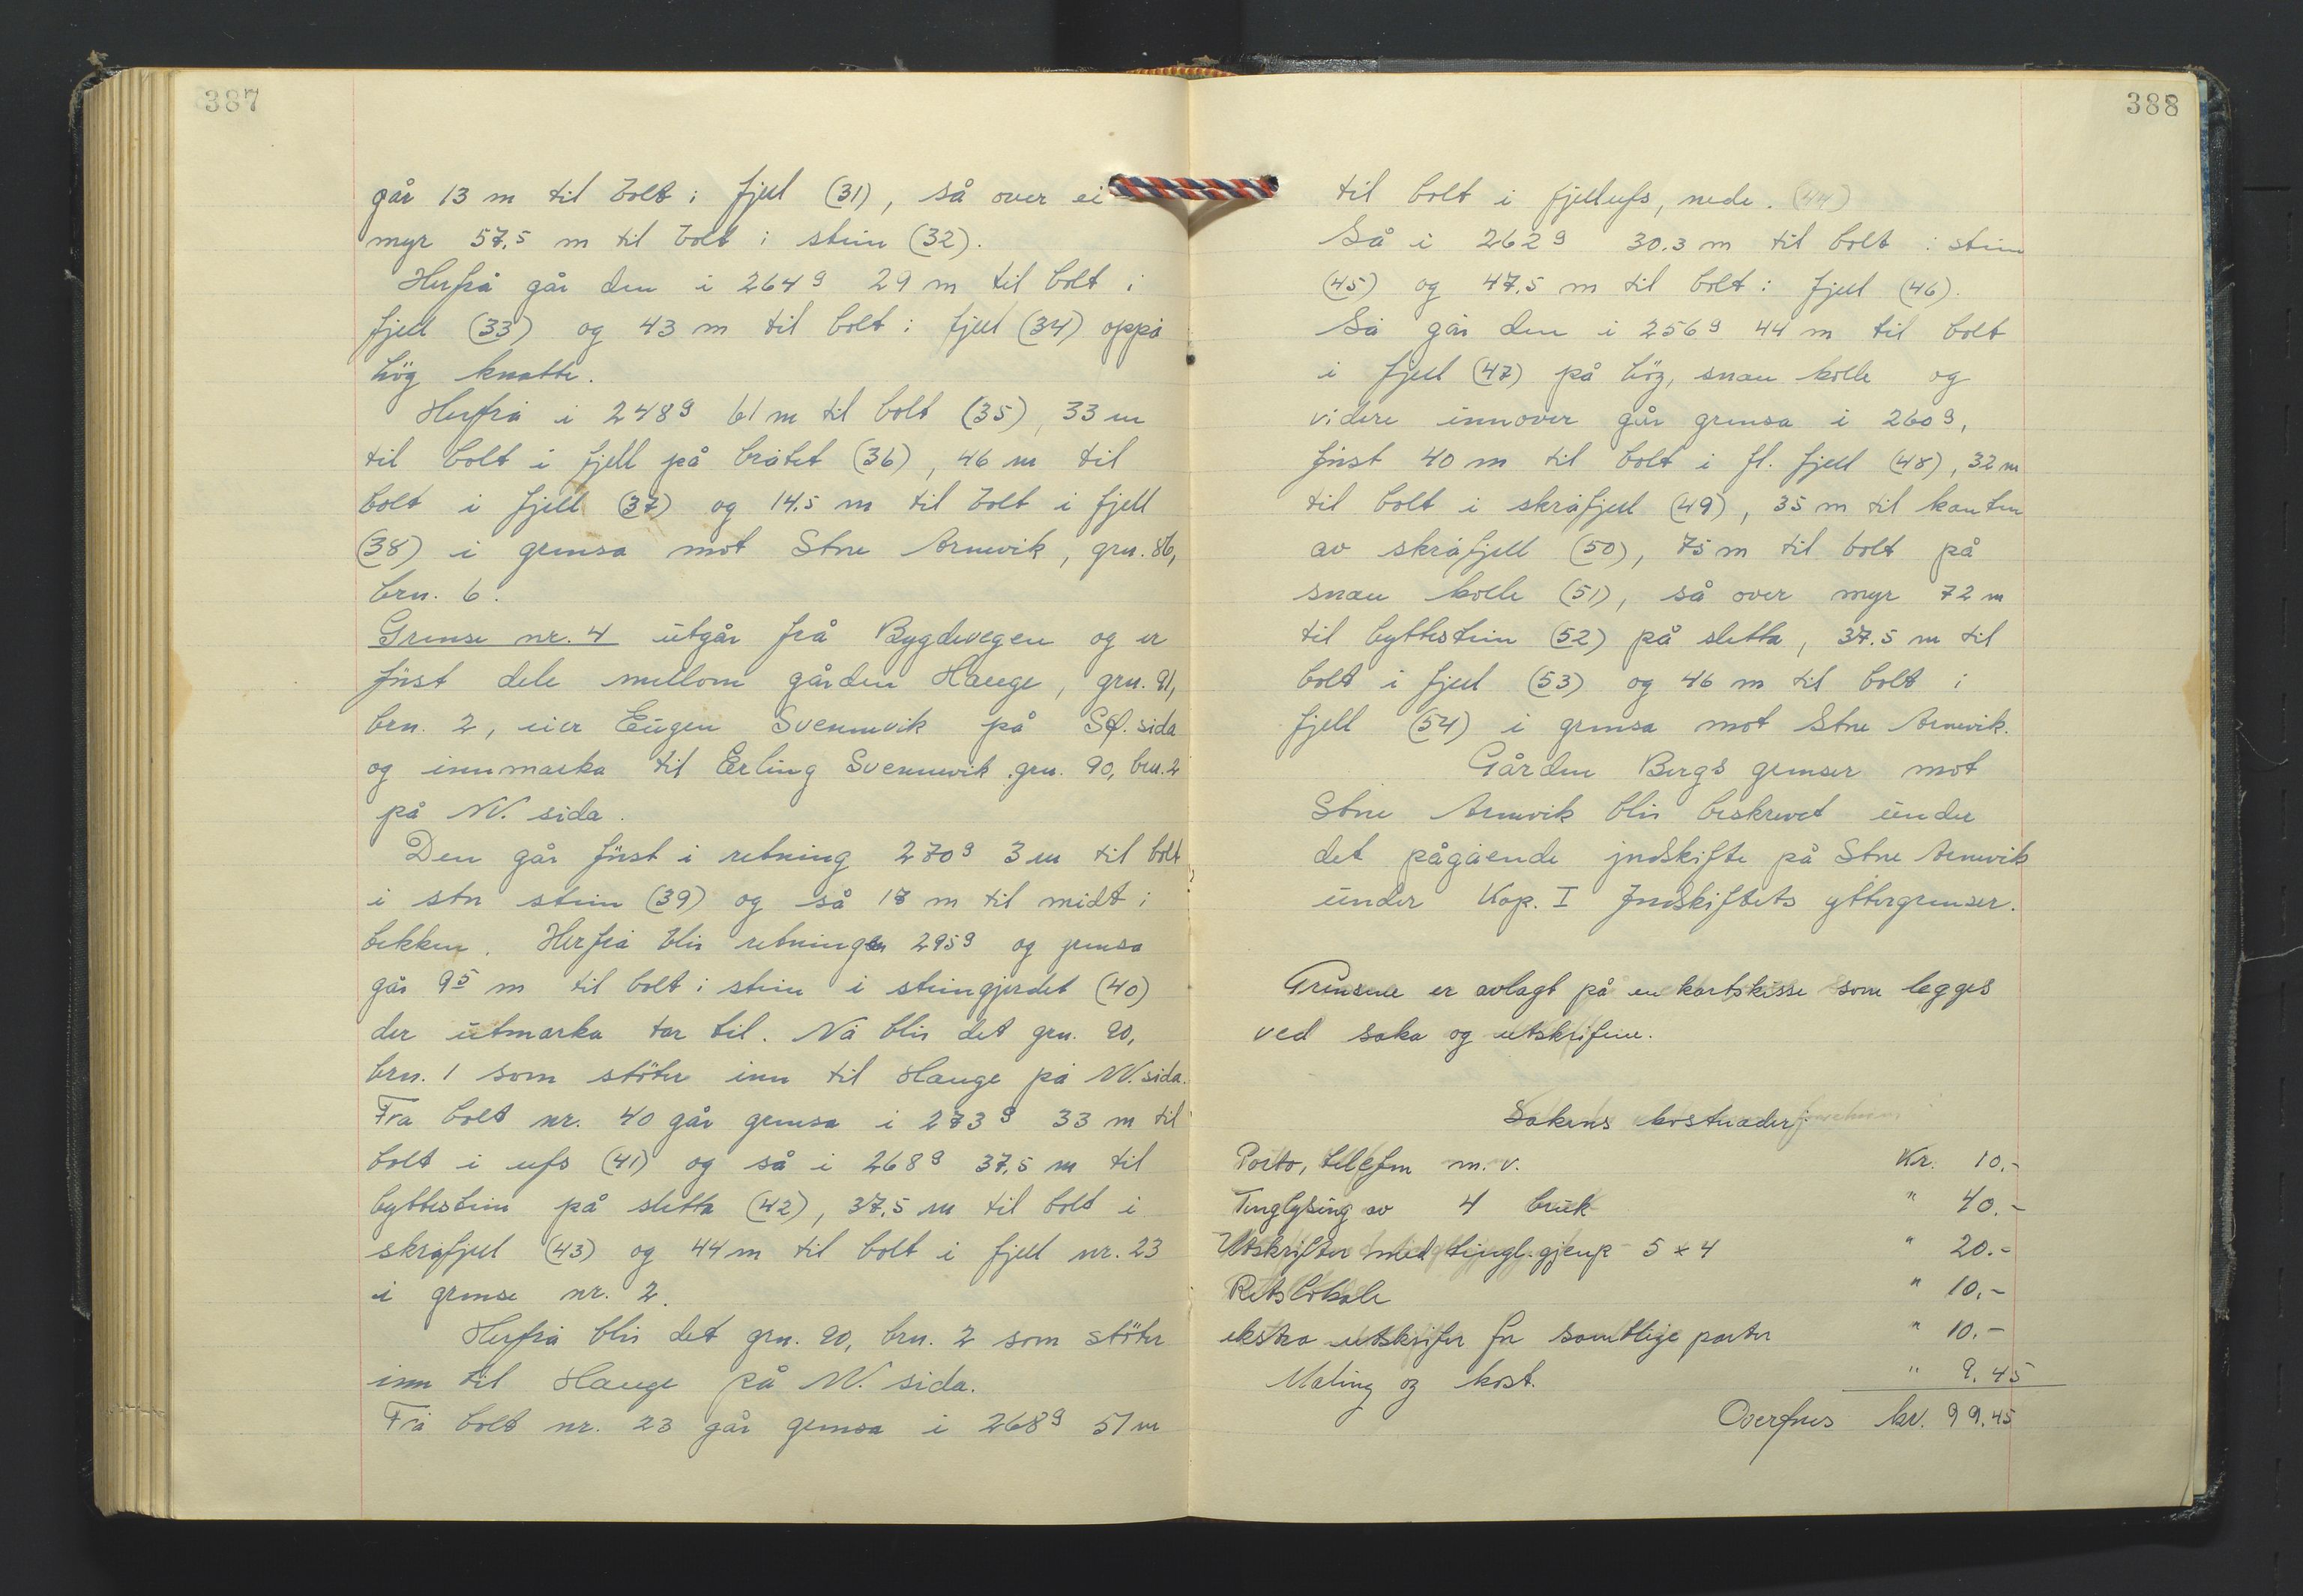 387
går 13 m til bolt i fjell (31), så over ei
myr 57,5 m til bolt i stein (32).
Herfrå går den i 264g 29 m til bolt i
fjell (33) og 43 m til bolt i fjell (34) oppå
hög knatte.
Herfrå i 248g 61 m til bolt (35), 33 m
til bolt i fjell på bråtet (36), 46 m til
bolt i fjell (37) og 14.5 m til bolt i fjell
(38) i grensa mot Stne Arnevik, grn. 86,
brn. 6.
Grense nr. 4 utgår frå Bygdevegen og er
först dele mellom gården Hauge, grn. 91,
brn. 2, eier Eugen Svennevik på SØ. sida
og innmarka til Erling Svennevik, grn. 90, brn. 2
på NV. sida.
Den går först i retning 270g 3 m til bolt
i stn stein (39) og så 18 m til midt i
bekken. Herfrå blir retningen 295g og grensa
går 9⁵ m til bolt i stein i steingjerdet (40)
der utmarka tar til. Nå blir det grn. 90,
brn. 1 som stöter inn til Hauge på NV. sida.
Frå bolt nr. 40 går grensa i 273g 33 m til
bolt i ufs (41) og så i 268g 37,5 m til
byttestein på sletta (42), 37,5 m til bolt i
skråfjell (43) og 44 m til bolt i fjell nr. 23
i grense nr. 2.
Herfrå blir det grn. 90, brn. 2 som stöter
inn til Hauge på NV. sida.
Frå bolt nr. 23 går grensa i 268g 51 m
388
til bolt i fjellufs, nede. (44)
Så i 262g 30.3 m til bolt i stein
(45) og 47,5 m til bolt i fjell (46).
Så går den i 256g 44 m til bolt
i fjell (47) på hög, snau kolle og
videre innover går grensa i 260g,
först 40 m til bolt i fl. fjell (48), 32 m
til bolt i skråfjell (49), 35 m til kanten
av skråfjell (50), 75 m til bolt på
snau kolle (51), så over myr 72 m
til byttestein (52) på sletta, 37.5 m til
bolt i fjell (53) og 46 m til bolt i
fjell (54) i grensa mot Stne Arnevik.
Gården Bergs grenser mot
Stne Arnevik blir beskrevet under
det pågående jordskifte på Stne Arnevik
under Kap. I Jordskiftets yttergrenser.
Grensene er avlagt på en kartskisse som legges
ved saka og utskriftene.
Sakens kostnader:
Porto, telefon m. v. Kr. 10.-
Tinglysing av 4 bruk " 40.-
Utskrifter med tingl. gjenp 5 x 4 " 20.-
Retslokale " 10.-
ekstra utskrifter for samtlige parter " 10.-
Maling og kost. " 9.45
Overføres kr. 99.45